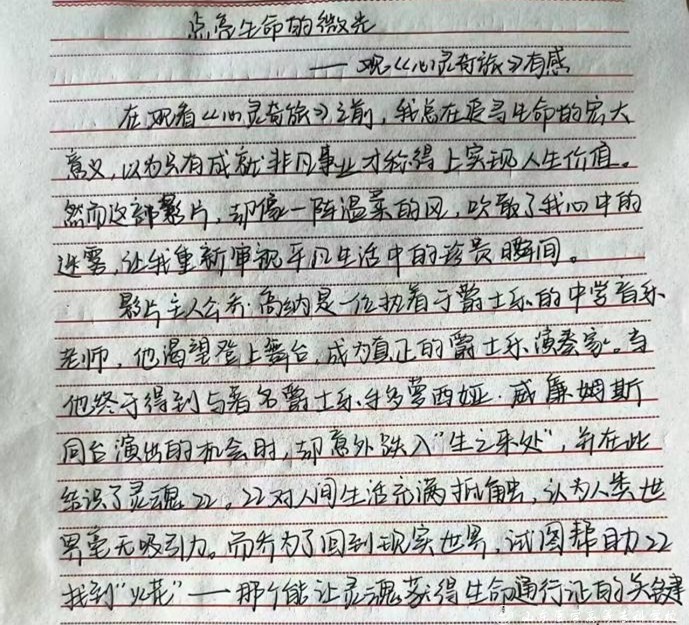 点亮生命的微光
——观《心灵奇旅》有感
在观看《心灵奇旅》之前，我总在追寻生命的宏大
意义，以为只有成就非凡事业才称得上实现人生价值。
然而这部影片，却像一阵温柔的风，吹散了我心中的
迷雾，让我重新审视平凡生活中的珍贵瞬间。
影片主人公乔·高纳是一位执着于爵士乐的中学音乐
老师，他渴望登上舞台，成为真正的爵士乐演奏家。当
他终于得到与著名爵士乐手多萝西娅·威廉姆斯
同台演出的机会时，却意外跌入“生之来处”，并在此
结识了灵魂22。22对人间生活充满抵触，认为人类世
界毫无吸引力。而乔为了回到现实世界，试图帮助22
找到“火花”——那个能让灵魂获得生命通行证的关键